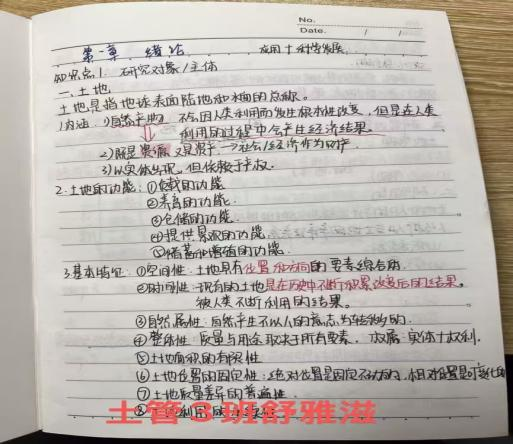 No.
Date. / /
第一章 绪论 应用+科学发展
知识点1. 研究对象/主体
一、土地
土地是指地球表面陆地和水面的总称。
1.内涵: 1)自然产物 不会因人类利用而发生根本性改变,但是在人类
利用的过程中会产生经济结果。
2)既是资源又是资产→社会/经济作为资产
3)以实体出现,但依赖于产权。
2.土地的功能: ①负载的功能
②养育的功能
③仓储的功能
④提供景观的功能
⑤储蓄和增值的功能
3.基本特征: ①空间性:土地具有位置和方向的要素综合体
②时间性:现有的土地是在历史中不断积累改变后的结果。
被人类不断利用的结果。
③自然属性:自然产生不以人的意志为转移的
④整体性:质量与用途取决于所有要素。 权属:实体+权利。
⑤土地面积的有限性
⑥土地位置的固定性:绝对位置是固定不动的,相对位置是可变化的
⑦土地质量差异的普遍性
土管3班舒雅滋